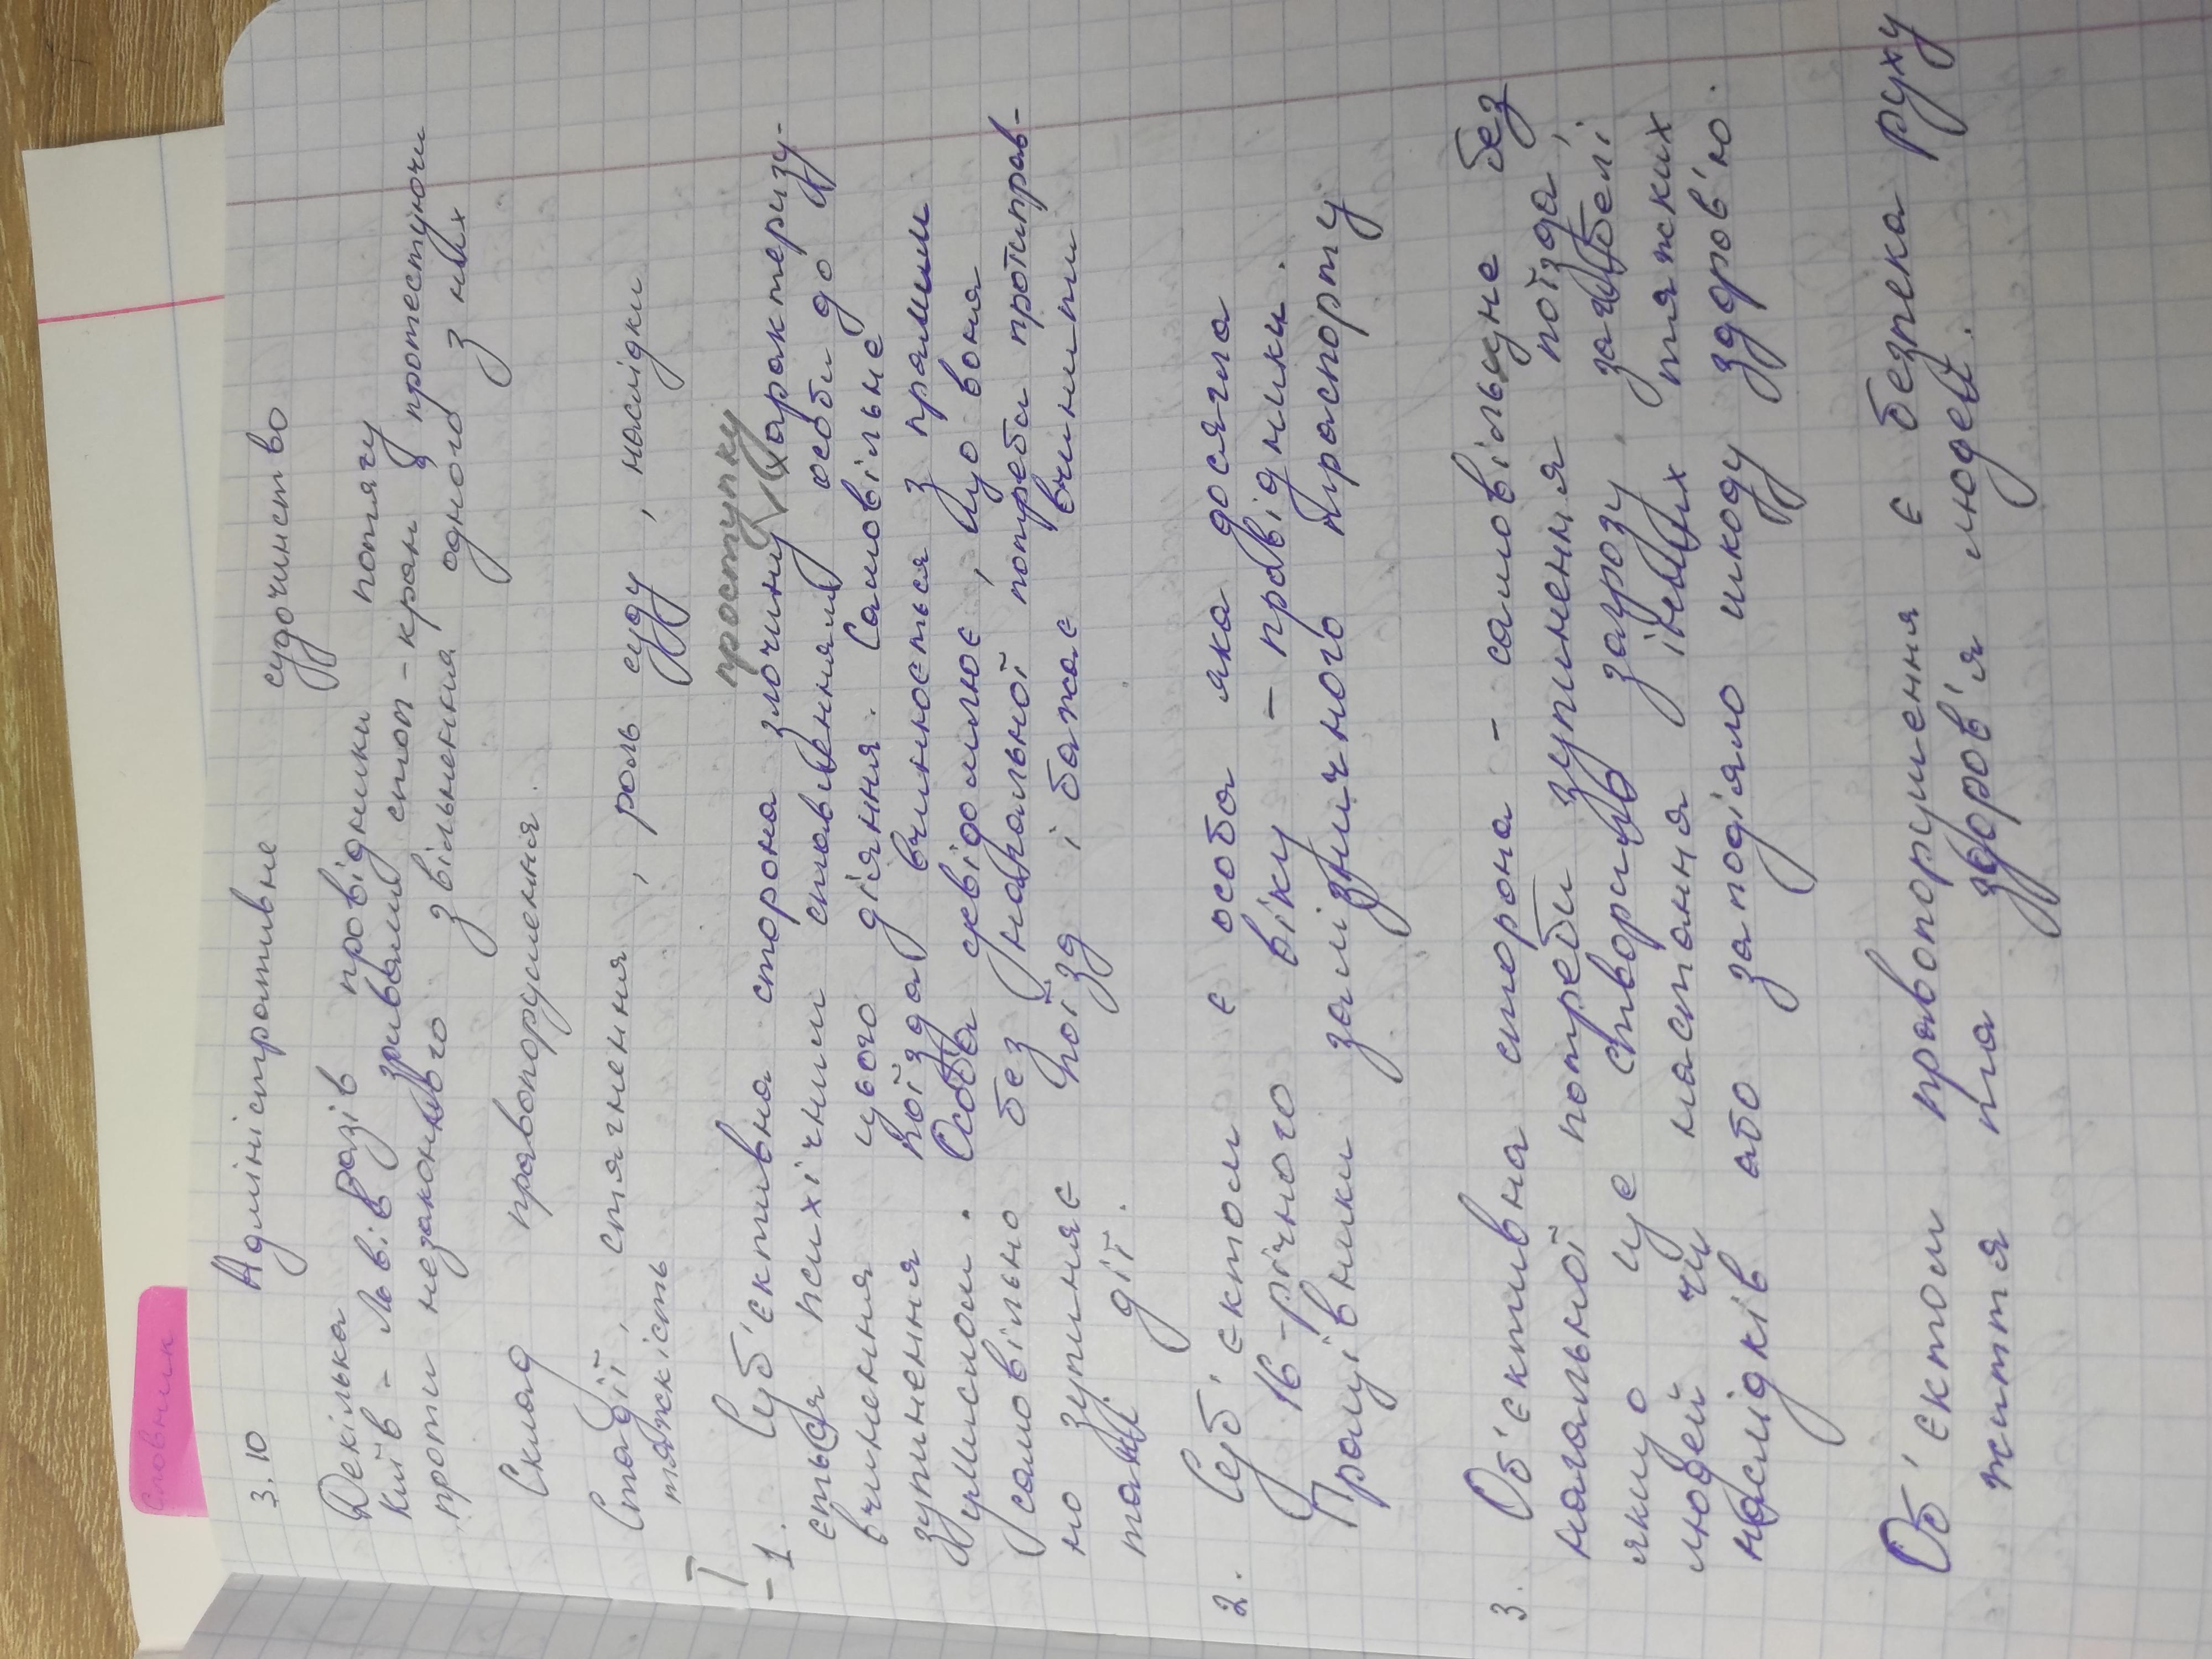 Словник
3.10 Адміністративне судочинство
Декілька разів провідники потягу
Київ - Львів зривали стоп-кран протестуючи
проти незаконного звільнення одного з них
Склад правопорушення.
Стадії, стягнення, роль суду, наслідки
тяжкість
I
проступку
- 1. Суб'єктивна сторона злочину характеризу-
ється психічним ставленням особи до
вчинення цього діяння. Самовільне
зупинення поїзда вчинюється з прямим
умислом. Особа усвідомлює, що вона
самовільно без нагальної потреби протиправ-
но зупиняє поїзд і бажає вчинити
такі дії.
2. Суб'єктом є особа яка досягла
16-річного віку - провідники.
Працівники залізничного транспорту
3. Об'єктивна сторона - самовільне без
нагальної потреби зупинення поїзда,
якщо це створило загрозу загибелі
людей чи настання інших тяжких
наслідків або заподіяло шкоду здоров'ю.
Об'єктом правопорушення є безпека руху
життя та здоров'я людей.